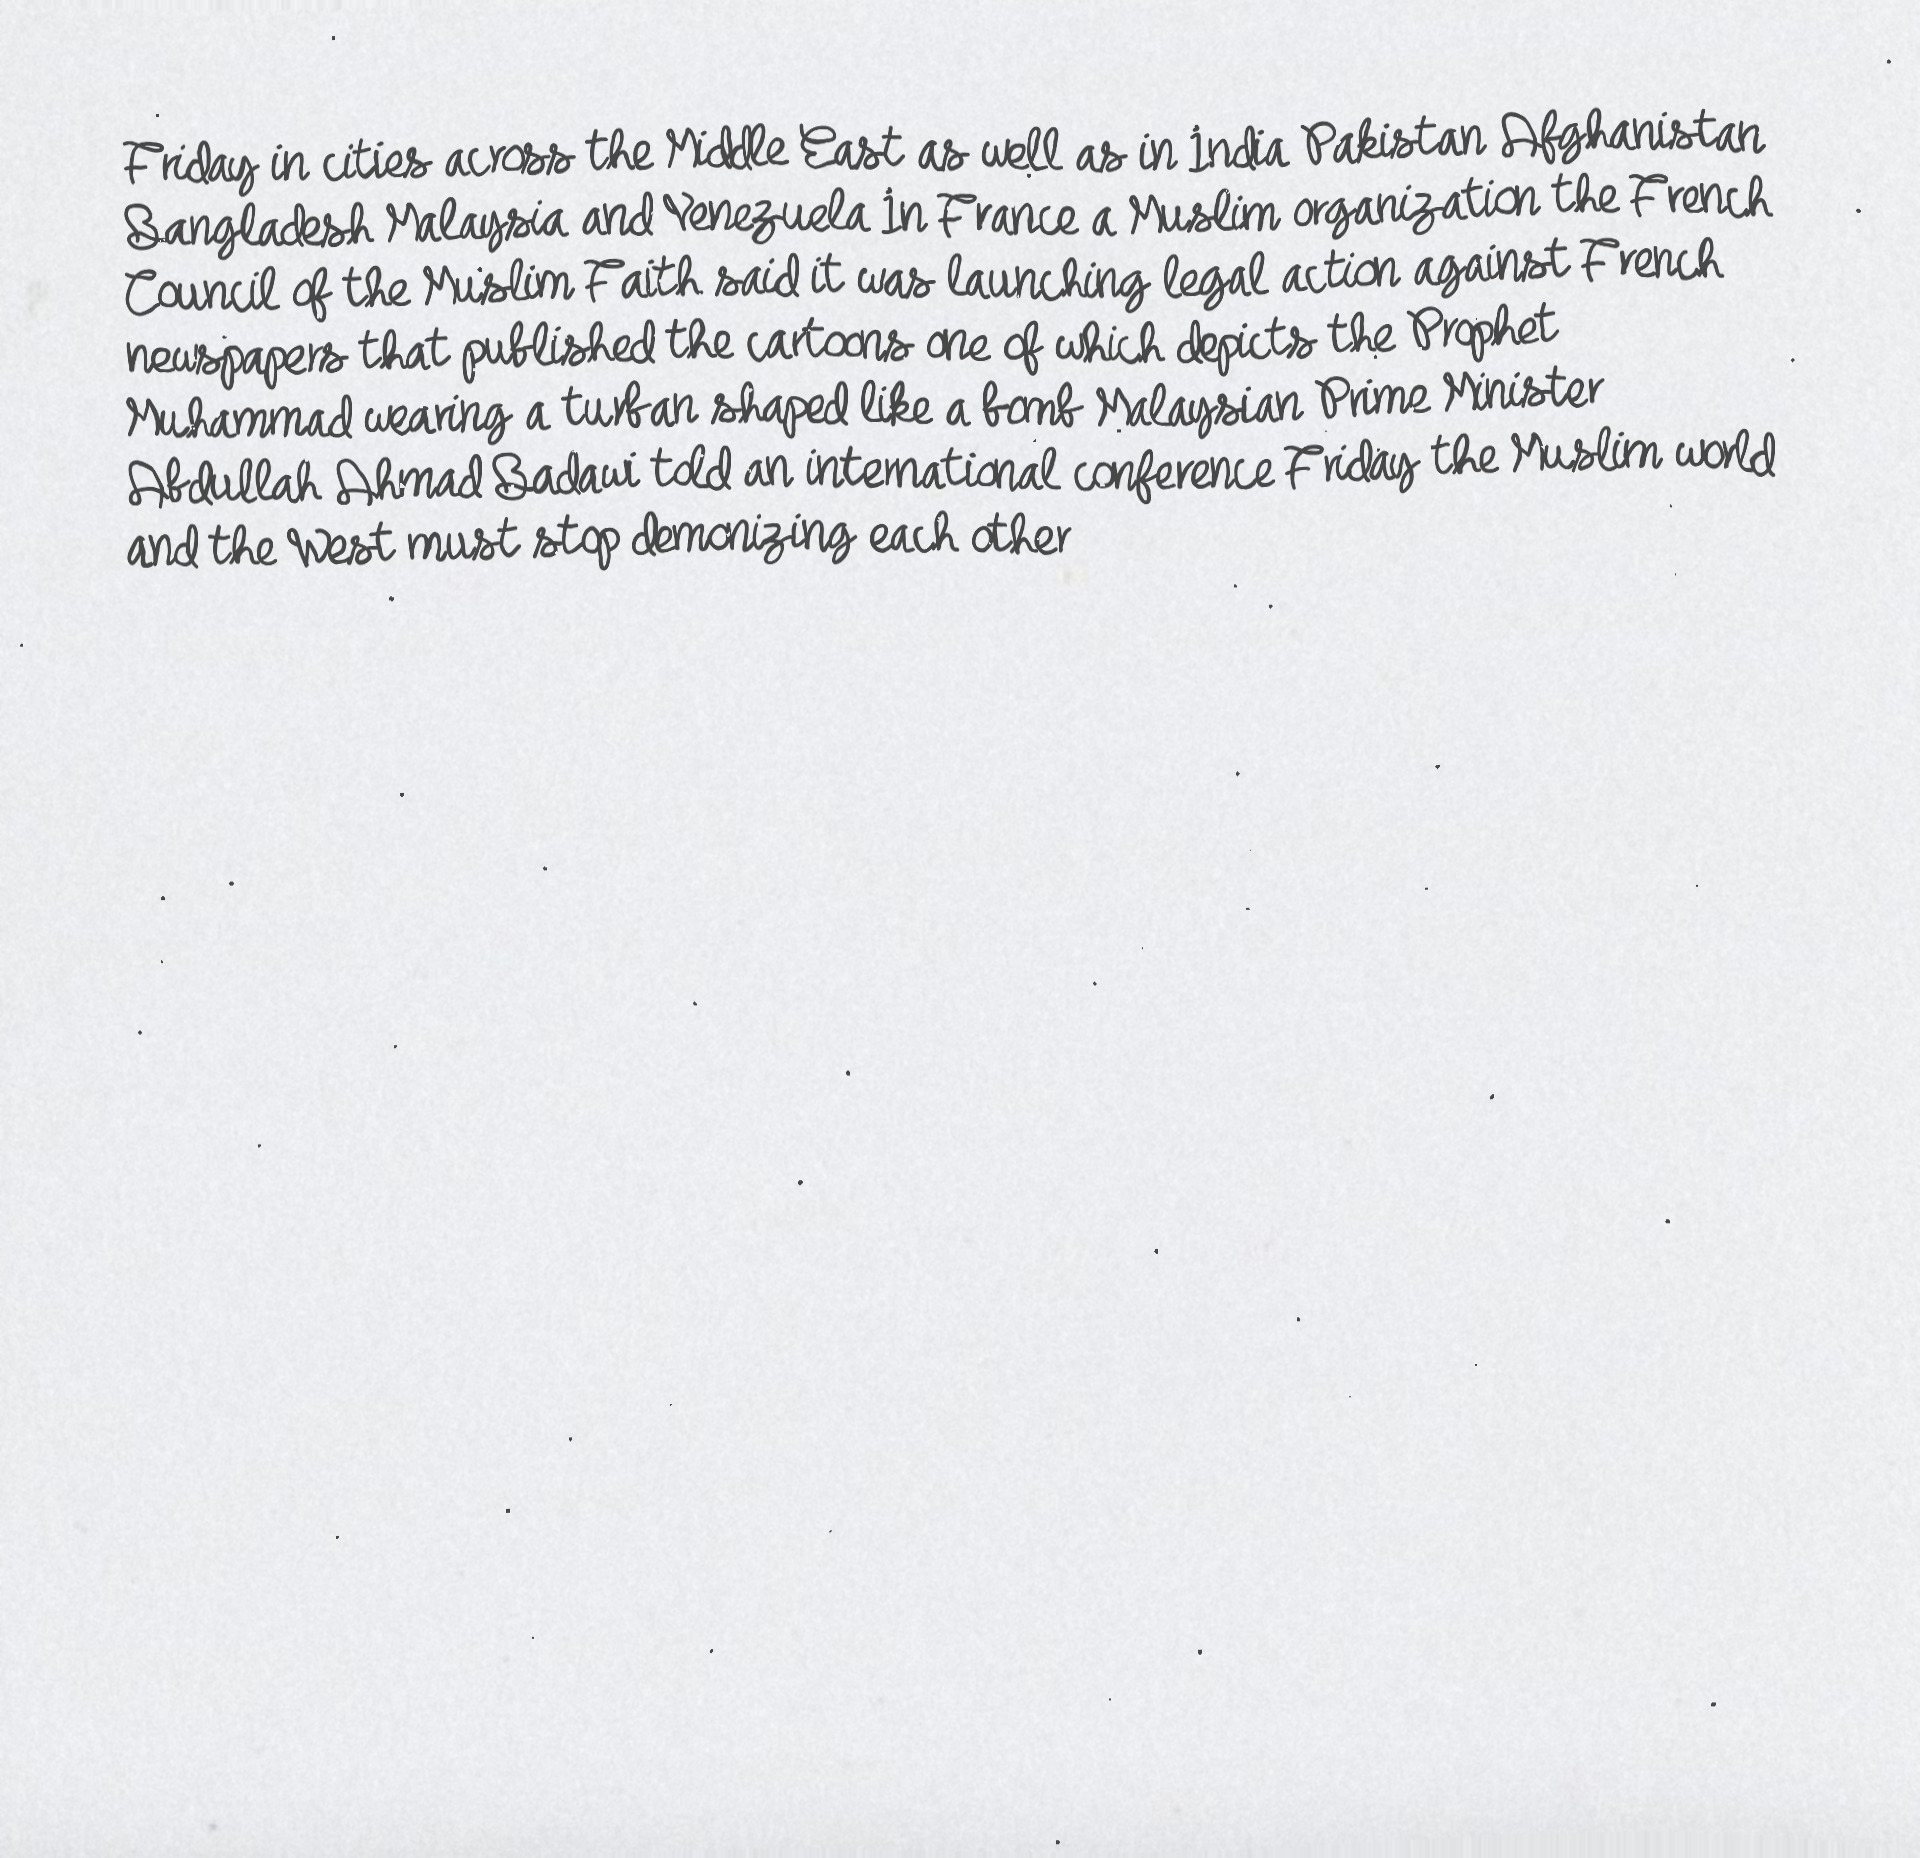 Friday in cities across the Middle East as well as in India Pakistan Afghanistan
Bangladesh Malaysia and Venezuela In France a Muslim organization the French
Council of the Muslim Faith said it was launching legal action against French
newspapers that published the cartoons one of which depicts the Prophet
Muhammad wearing a turban shaped like a bomb Malaysian Prime Minister
Abdullah Ahmad Badawi told an international conference Friday the Muslim world
and the West must stop demonizing each other